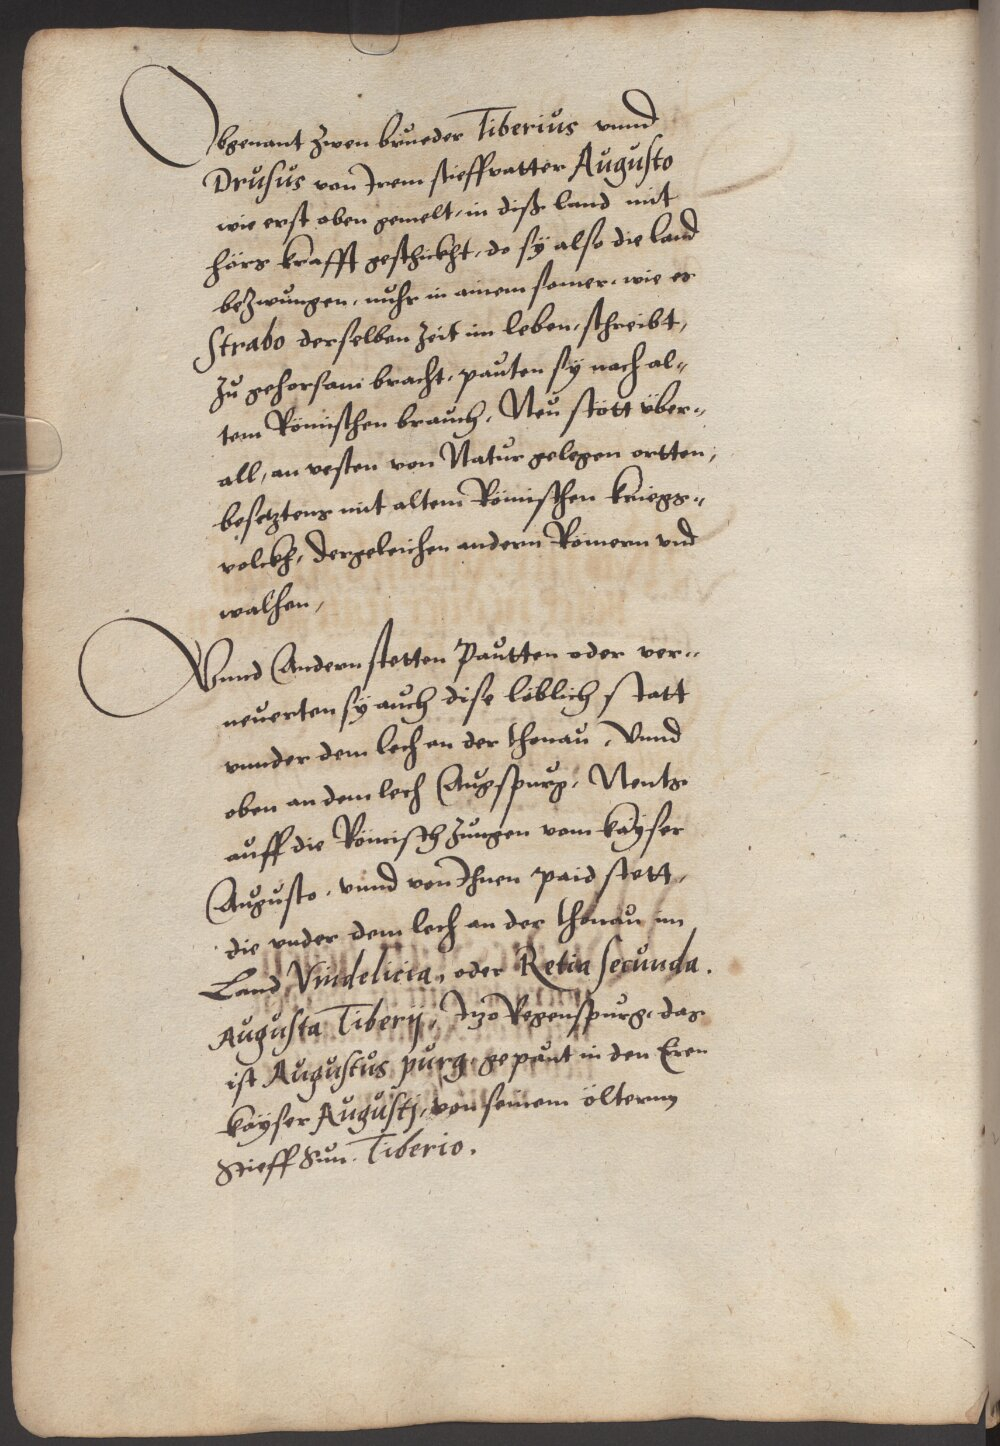 Obgenant zwen brueder Tiberius vnnd
Drusus von Irem stieffvatter Augusto
wie erst oben gemelt, in diß land mit
hörs krafft geschickht, do sÿ also die land
bezwungen, nuhr in ainem somer, wie es
Strabo derselben zeit im leben, schreibt,
zu gehorsam bracht, pauten sÿ nach al-
tem Römischen brauch, Neu stött über-
all, an vesten von Natur gelegen ortten,
besetztens mit altem Römischen kriegs-
volckh, dergeleichen andern Römern vnd
walhen,
Vnnd Andern stetten Pautten oder ver-
neuerten sÿ auch dise löblich statt
vnnder dem lech an der thonau, Vnnd
oben an dem lech Augspurg, Nents
auff die Römisch zungen vom kaÿser
Augusto, vnnd von Ihnen paid stett,
die vnder dem lech an der thonau im
Land Vindelicia, oder Retia Secunda.
Augusta Tiberij, Itzo Regenspurg, das
ist Augustus purg, gepaut in den Eren
kaÿser Augustj, von seinem öltern
Stieff Sun Tiberio.